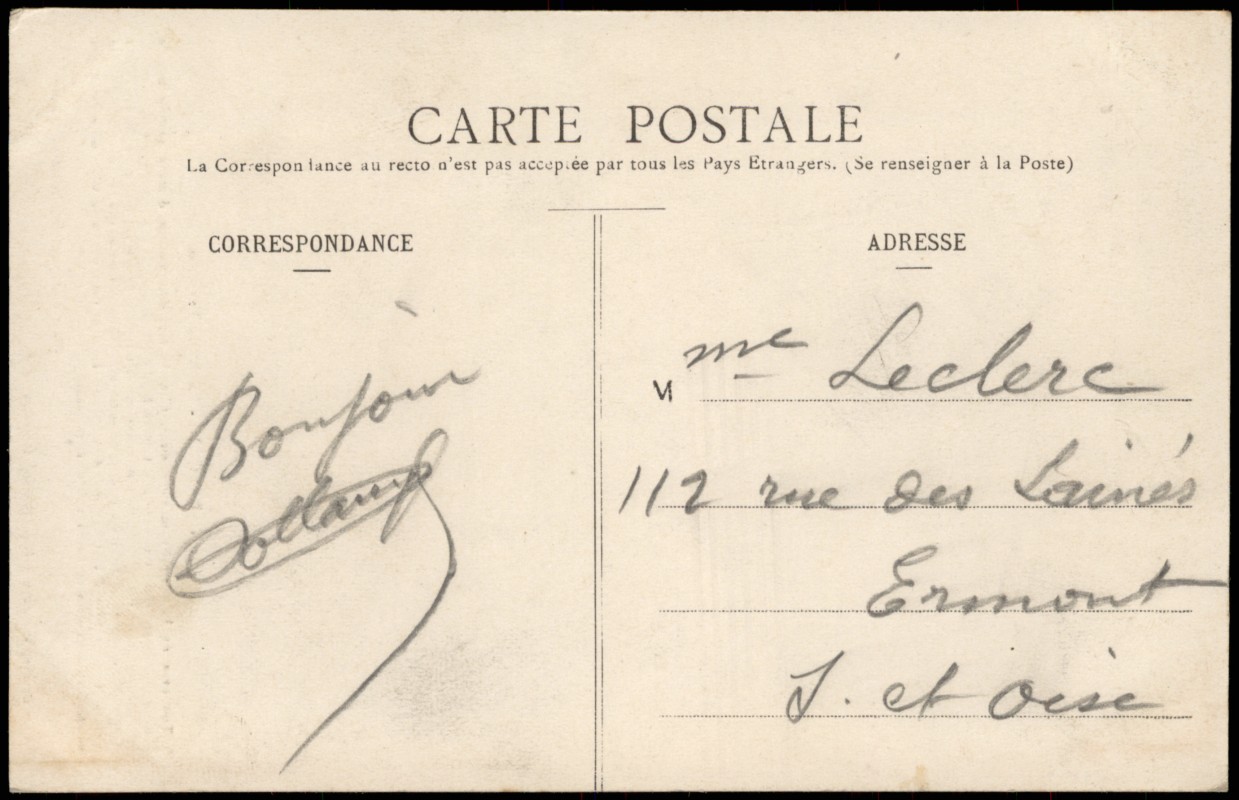 CARTE POSTALE
La Correspondance au recto n'est pas acceptée par tous les Pays Etrangers. (Se renseigner à la Poste)
CORRESPONDANCE
ADRESSE
Bonjour
M me Leclerc
112 rue des Lainés
Ermont
S. et Oise